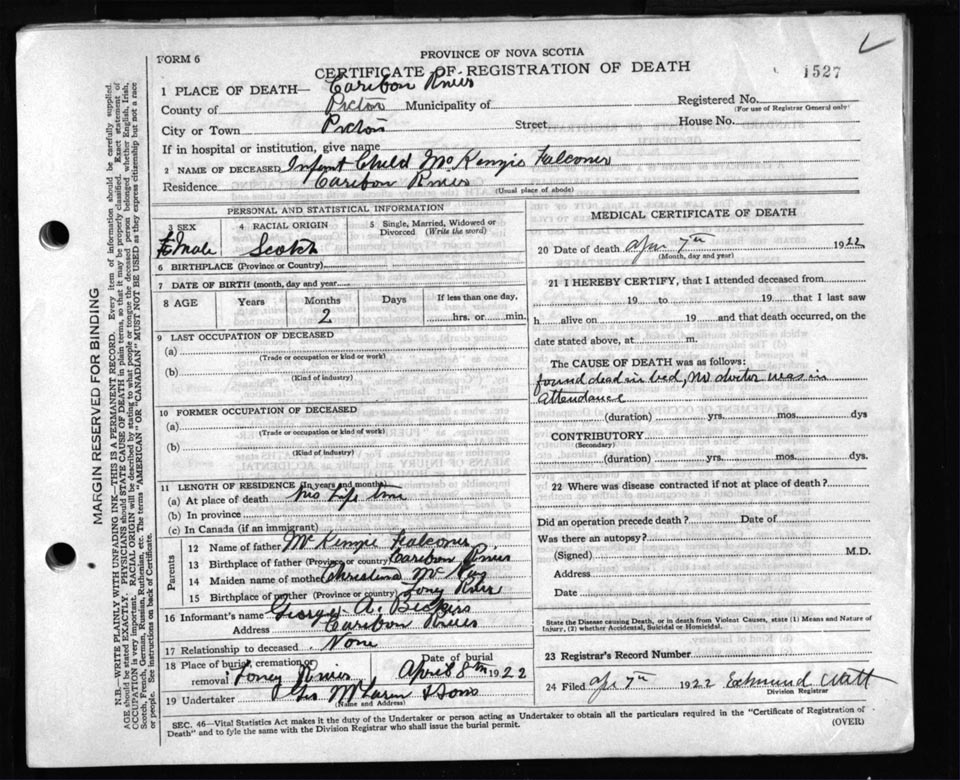 FORM 6
PROVINCE OF NOVA SCOTIA
CERTIFICATE OF REGISTRATION OF DEATH
1527
1 PLACE OF DEATH— Caribou River
County of Pictou Municipality of
Registered No.
(For use of Registrar General only)
City or Town Pictou Street House No.
If in hospital or institution, give name
2 NAME OF DECEASED Infant Child McKenzie Falconer
Residence Caribou River
(Usual place of abode)
PERSONAL AND STATISTICAL INFORMATION
3 SEX 4 RACIAL ORIGIN 5 Single, Married, Widowed or Divorced (Write the word)
FeMale Scotch
6 BIRTHPLACE (Province or Country)
7 DATE OF BIRTH (month, day and year)
8 AGE Years Months Days If less than one day,
2 hrs. or min.
9 LAST OCCUPATION OF DECEASED
(a)
(Trade or occupation or kind or work)
(b)
(Kind of industry)
10 FORMER OCCUPATION OF DECEASED
(a)
(Trade or occupation or kind of work)
(b)
(Kind of industry)
11 LENGTH OF RESIDENCE (In years and months)
(a) At place of death his Life time
(b) In province
(c) In Canada (if an immigrant)
Parents
12 Name of father McKenzie Falconer
13 Birthplace of father (Province or country) Caribou River
14 Maiden name of mother Christina Mc
15 Birthplace of mother (Province or country) Toney River
16 Informant's name George A.
Address Caribou River
17 Relationship to deceased None
18 Place of burial, cremation or removal Toney River
Date of burial April 8th 1922
19 Undertaker Geo McLaren & Sons
(Name and Address)
MEDICAL CERTIFICATE OF DEATH
20 Date of death Apr 7th 1922
(Month, day and year)
21 I HEREBY CERTIFY, that I attended deceased from
19 to 19 that I last saw
h alive on 19 and that death occurred, on the
date stated above, at m.
The CAUSE OF DEATH was as follows:
found dead in bed, No doctor was in
attendance
(duration) yrs. mos. dys
CONTRIBUTORY
(Secondary)
(duration) yrs. mos. dys.
22 Where was disease contracted if not at place of death?
Did an operation precede death? Date of
Was there an autopsy?
(Signed) M.D.
Address
Date
State the Disease causing Death, or in death from Violent Causes, state (1) Means and Nature of
Injury, (2) whether Accidental, Suicidal or Homicidal.
23 Registrar's Record Number
24 Filed Apr 7th 1922 Edmund
Division Registrar
SEC. 46—Vital Statistics Act makes it the duty of the Undertaker or person acting as Undertaker to obtain all the particulars required in the "Certificate of Registration of
Death" and to fyle the same with the Division Registrar who shall issue the burial permit.
(OVER)
MARGIN RESERVED FOR BINDING
N.B.—WRITE PLAINLY WITH UNFADING INK—THIS IS A PERMANENT RECORD. Every item of information should be carefully supplied.
AGE should be stated EXACTLY. PHYSICIANS should STATE CAUSE OF DEATH in plain terms, so that it may be properly classified. Exact statement of
OCCUPATION is very important. RACIAL ORIGIN will be described by stating to what people or tongue the deceased person belonged whether English, Irish,
Scotch, French, German, Russian, Ruthenian, etc. The terms "AMERICAN" OR "CANADIAN" MUST NOT BE USED as they express citizenship but not a race
or people. See instructions on back of Certificate.